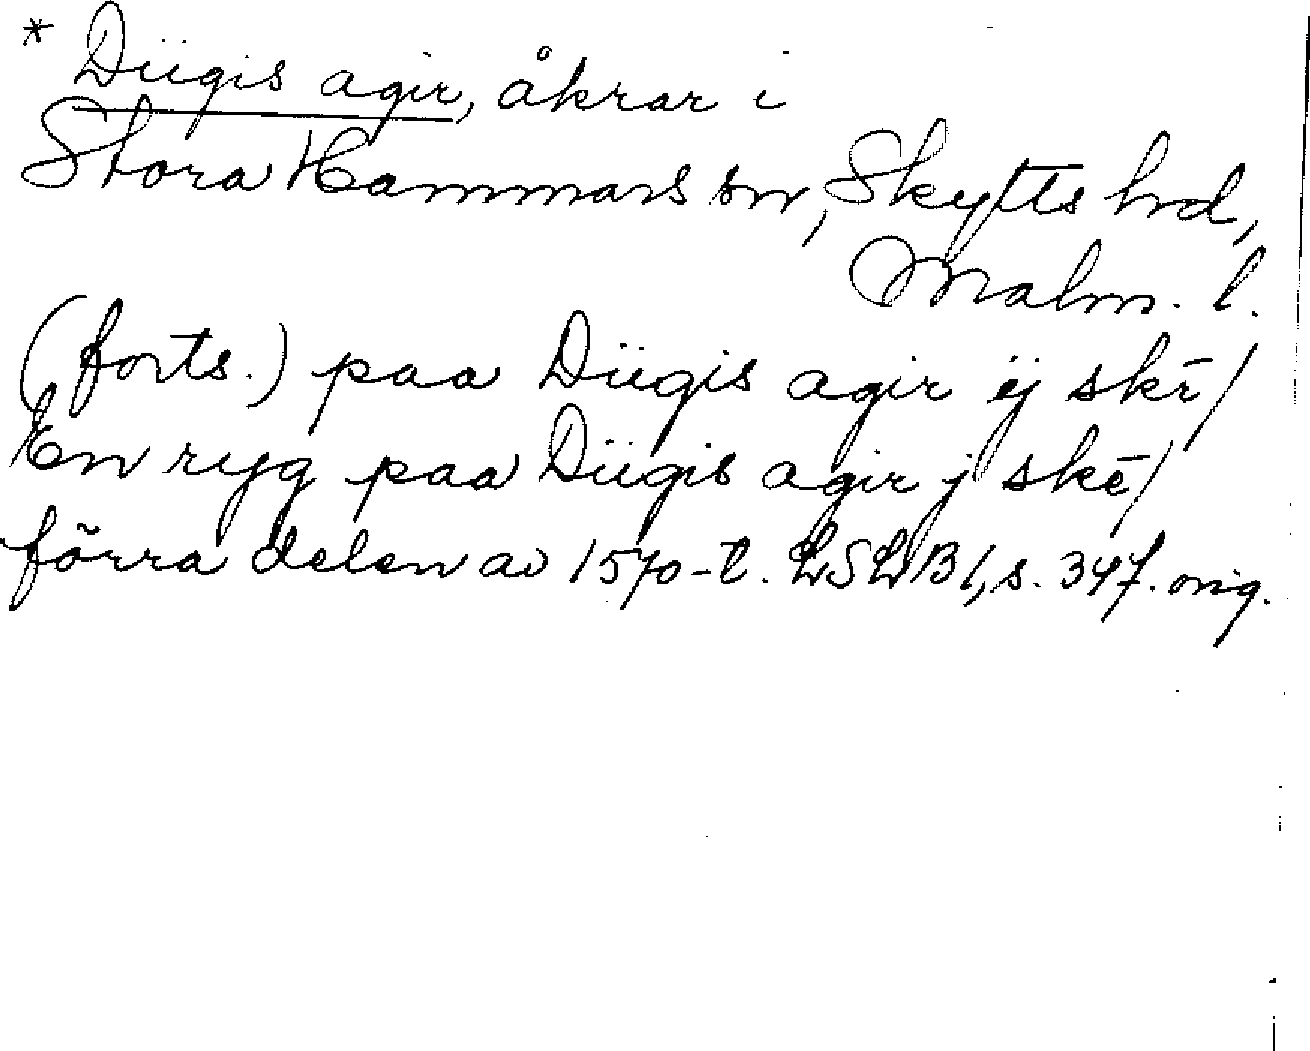 * Diigis agir, åkrar i
Stora Hammars sn, Skytts hd,
Malm. l.
(forts.) paa Diigis agir ij skē/
En ryg paa Diigis agir j skē/
förra delen av 1570-t. LSLB1, s. 347. orig.